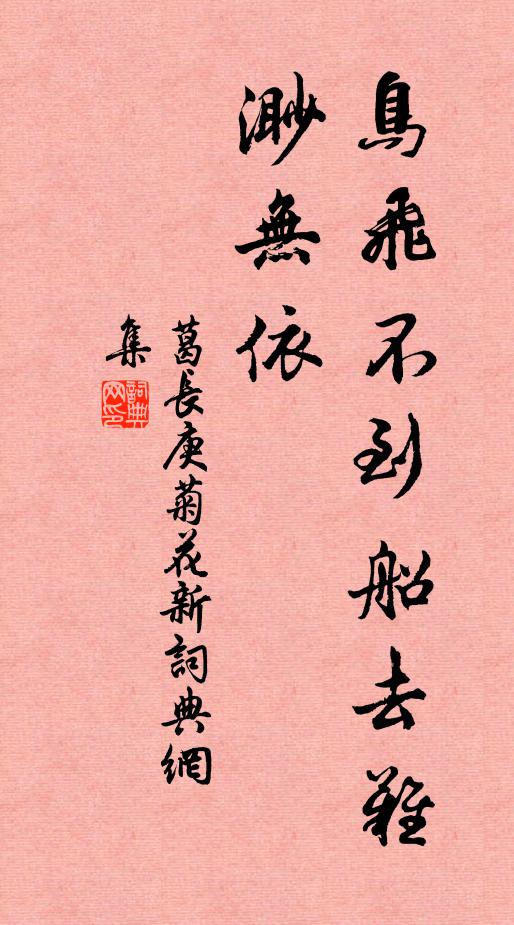 鳥飛不到船去難
渺無依
葛長庚菊花新詞典網
集
詞典網印